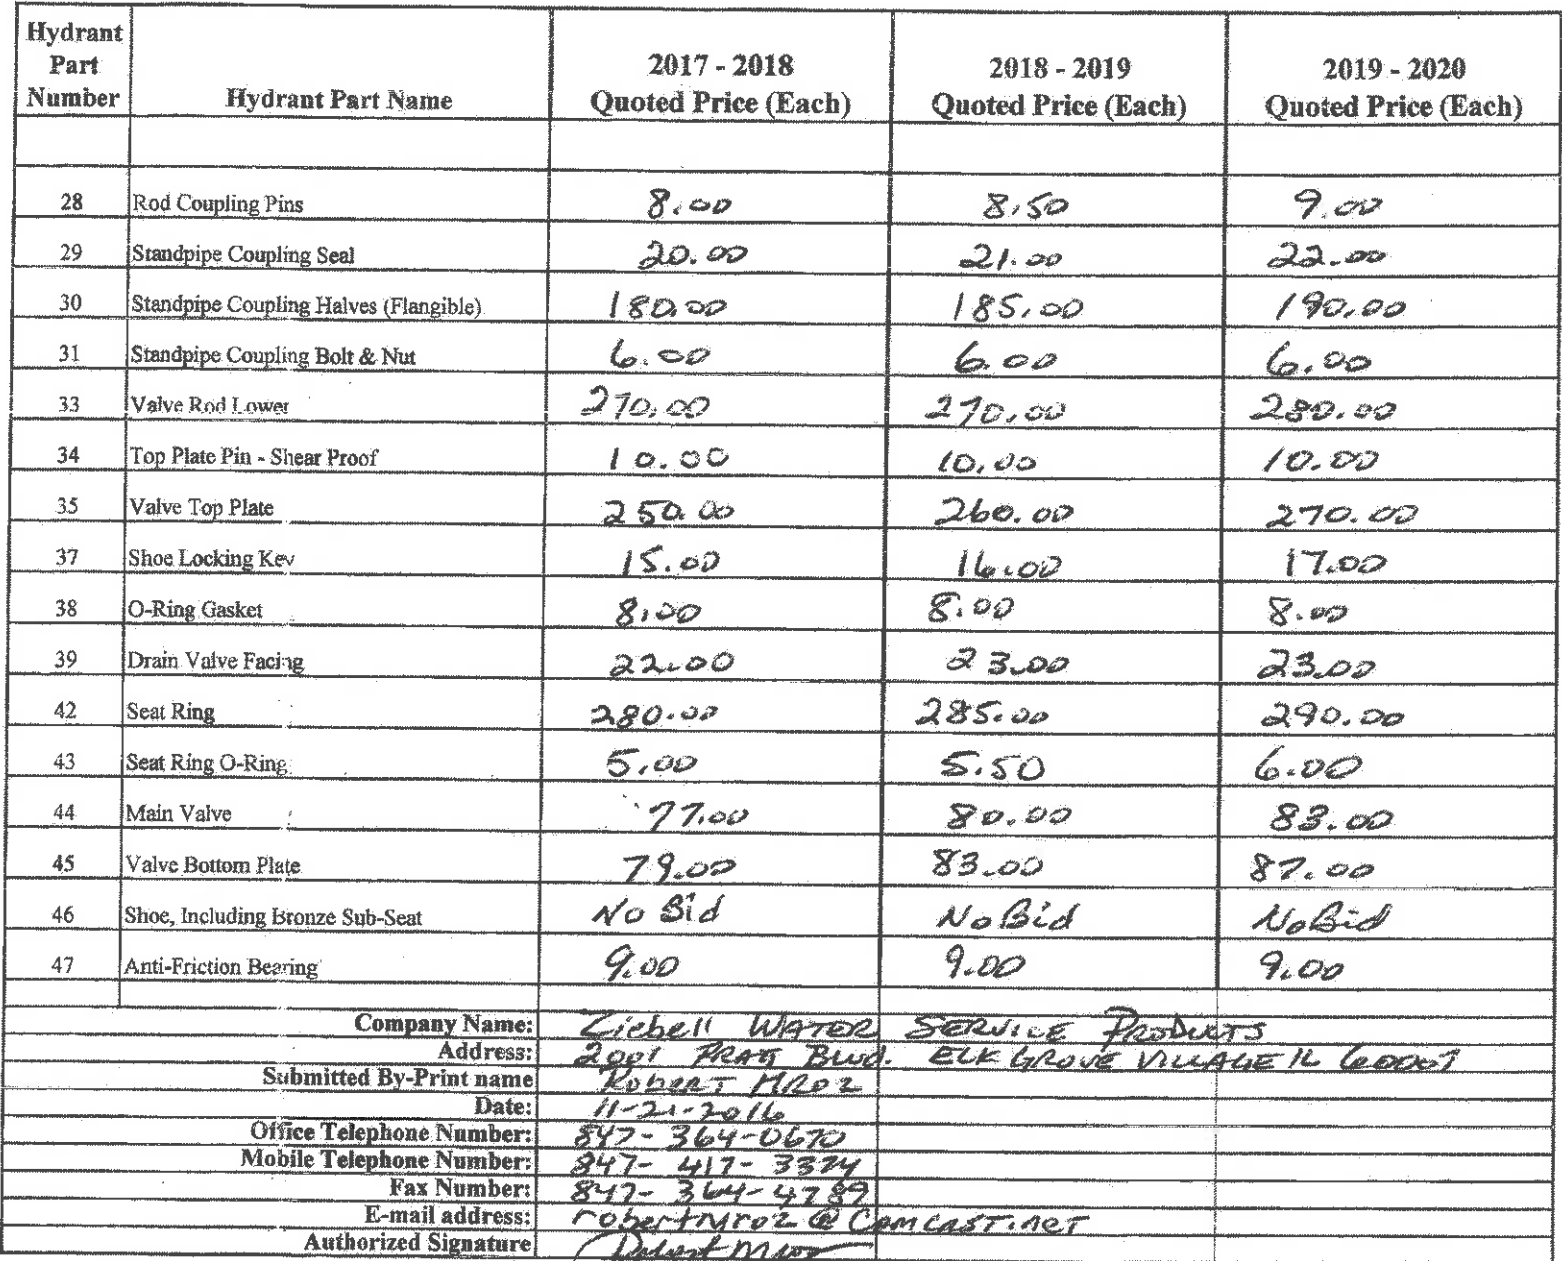 Hydrant Part Number Hydrant Part Name 2017 - 2018 Quoted Price (Each) 2018 - 2019 Quoted Price (Each) 2019 - 2020 Quoted Price (Each)
28 Rod Coupling Pins 8.00 8.50 9.00
29 Standpipe Coupling Seal 20.00 21.00 22.00
30 Standpipe Coupling Halves (Flangible) 180.00 185.00 190.00
31 Standpipe Coupling Bolt & Nut 6.00 6.00 6.00
33 Valve Rod Lower 270.00 270.00 280.00
34 Top Plate Pin - Shear Proof 10.00 10.00 10.00
35 Valve Top Plate 250.00 260.00 270.00
37 Shoe Locking Key 15.00 16.00 17.00
38 O-Ring Gasket 8.00 8.00 8.00
39 Drain Valve Facing 22.00 23.00 23.00
42 Seat Ring 280.00 285.00 290.00
43 Seat Ring O-Ring 5.00 5.50 6.00
44 Main Valve 77.00 80.00 83.00
45 Valve Bottom Plate 79.00 83.00 87.00
46 Shoe, Including Bronze Sub-Seat No Bid No Bid No Bid
47 Anti-Friction Bearing 9.00 9.00 9.00
Company Name: Ziebell WATER SERVICE PRODUCTS
Address: 2001 PRATT BLVD. ELK GROVE VILLAGE IL 60007
Submitted By-Print name ROBERT MROZ
Date: 11-21-2016
Office Telephone Number: 847-364-0670
Mobile Telephone Number: 847-417-3374
Fax Number: 847-364-4789
E-mail address: robertmroz@Comcast.net
Authorized Signature Robert Mroz